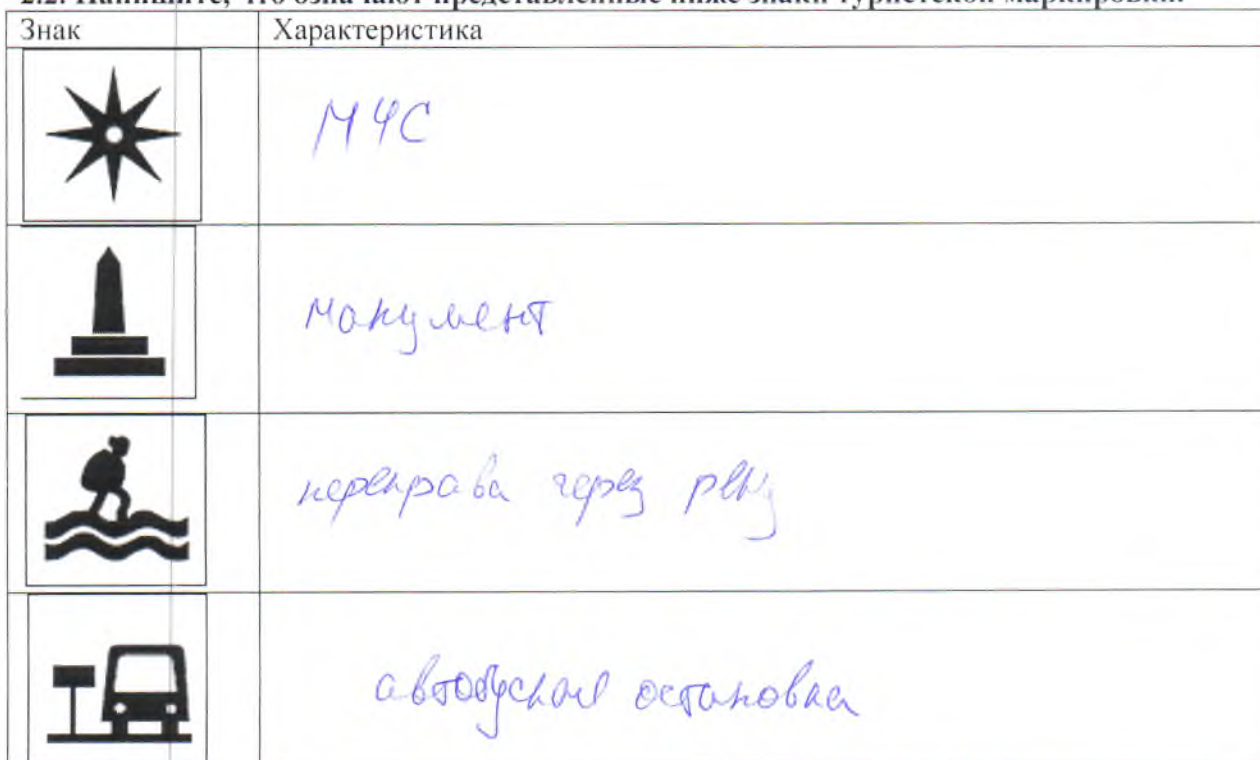 2.2. Напишите, что означают представленные ниже знаки туристской маркировки.
Знак Характеристика
МЧС
монумент
переправа через реку
автобусная остановка